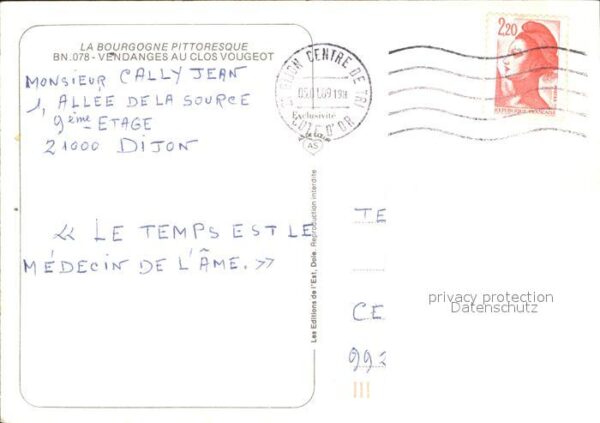 LA BOURGOGNE PITTORESQUE
BN.078 - VENDANGES AU CLOS VOUGEOT
MONSIEUR CALLY JEAN
1, ALLÉE DE LA SOURCE
9ème ETAGE
21000 DIJON
« LE TEMPS EST LE
MÉDECIN DE L'ÂME. »
DIJON CENTRE DE TRI
CÔTE D'OR
Exclusivité
AS
Les Editions de l'Est, Dole. Reproduction interdite
2,20
REPUBLIQUE FRANÇAISE
TE
CE
privacy protection
Datenschutz